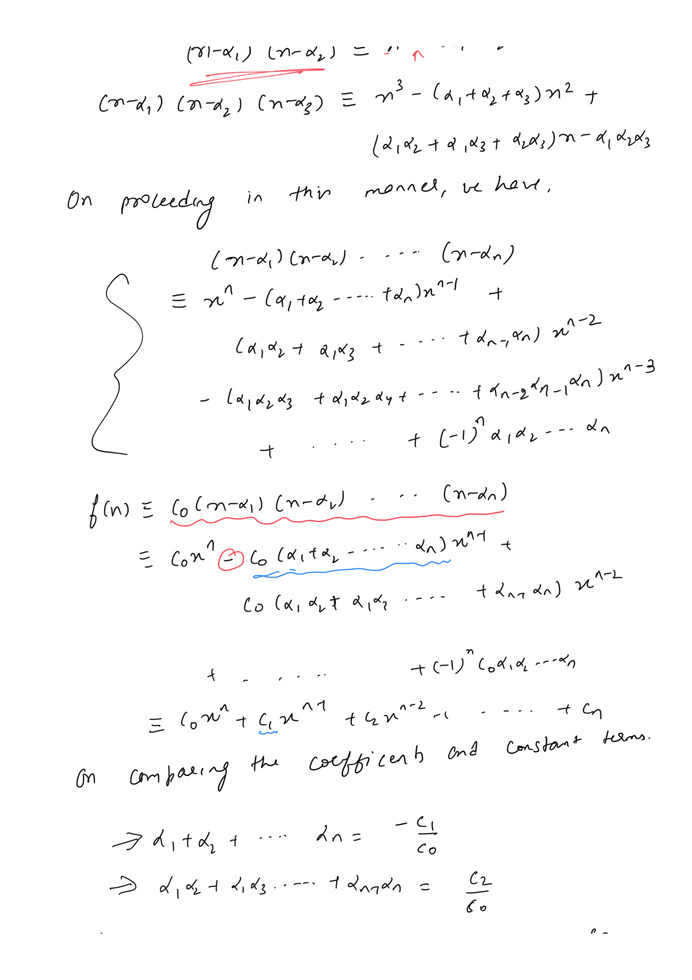 (n-α₁) (n-α₂) ≡
(n-α₁) (n-α₂) (n-α₃) ≡ n³ - (α₁+α₂+α₃)n² +
(α₁α₂ + α₁α₃ + α₂α₃)n - α₁α₂α₃
On proceeding in this manner, we have,
(n-α₁)(n-α₂) . . . . . (n-αn)
≡ nⁿ - (α₁+α₂ ----- +αn)nⁿ⁻¹ +
(α₁α₂ + α₁α₃ + - .... + αn-₁αn) nⁿ⁻²
- (α₁α₂α₃ + α₁α₂α₄ + .... + αn-₂αn-₁αn) nⁿ⁻³
+ . .... + (-1)ⁿ α₁α₂ --- αn
f(n) ≡ C₀(n-α₁) (n-α₂) . . . (n-αn)
≡ C₀nⁿ - C₀ (α₁+α₂ ------ αn)nⁿ⁻¹ +
C₀ (α₁α₂ + α₁α₃ .... + αn-₁ αn) nⁿ⁻²
+ . . . . . + (-1)ⁿ C₀α₁α₂ ---αn
≡ C₀nⁿ + C₁nⁿ⁻¹ + C₂nⁿ⁻² -. . .... + Cn
On comparing the coefficents and constant terms.
→ α₁+α₂ + .... αn = -C₁/C₀
→ α₁α₂ + α₁α₃ .---- + αn-₁αn = C₂/C₀